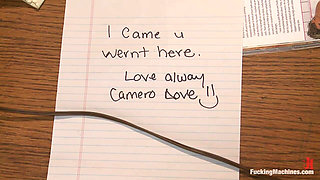 I Came u
wernt here.
Love alway
Camero Dove
FuckingMachines.com